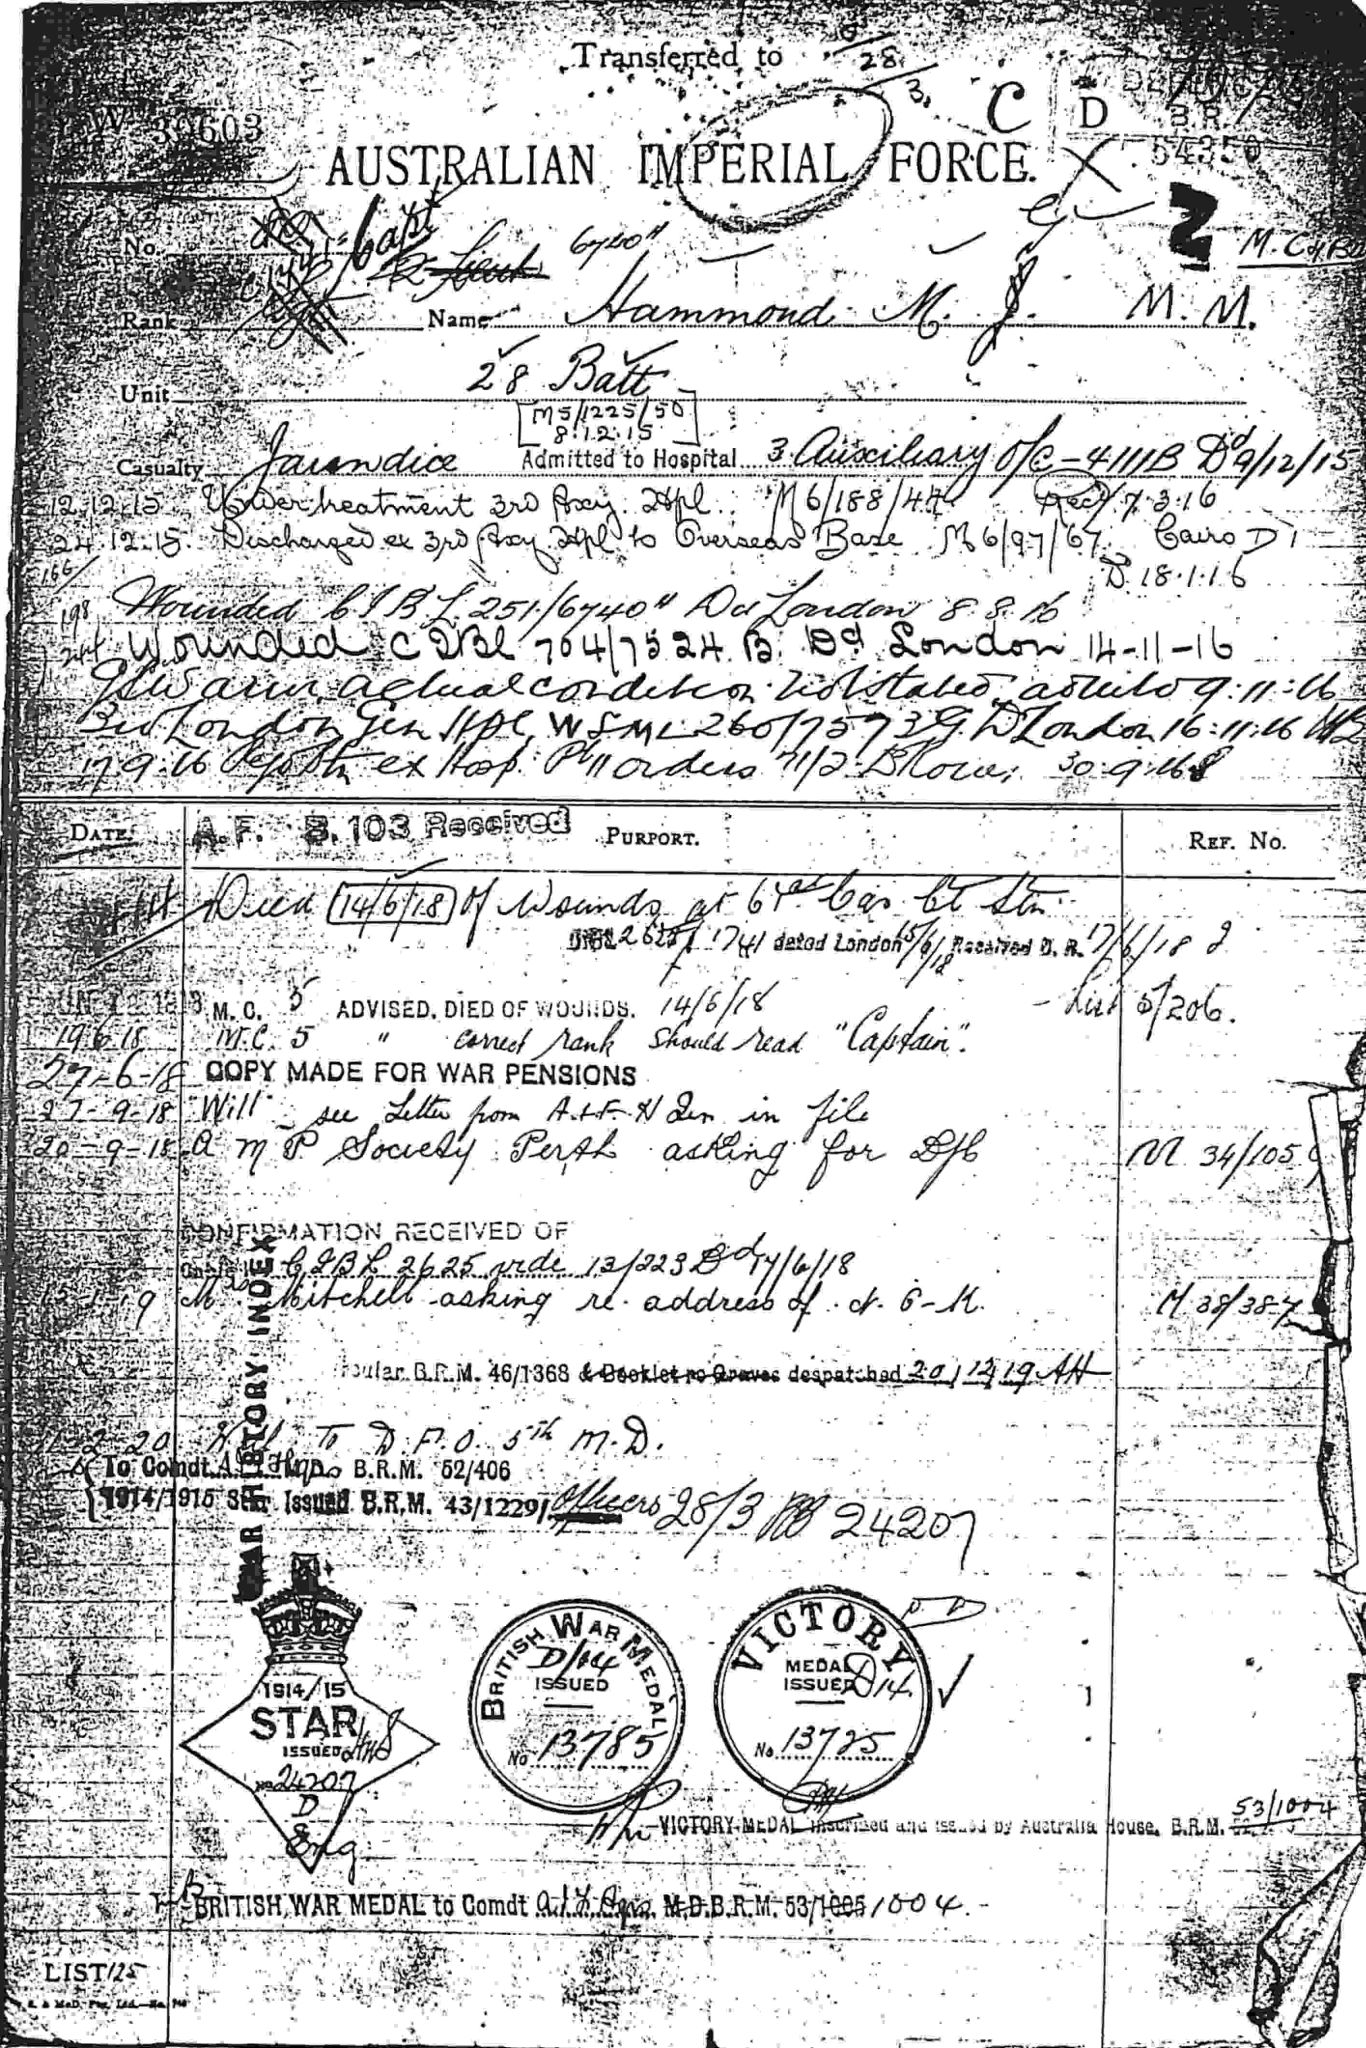 Transferred to
28
3.
C
D
B.R.
W 30603
54350
AUSTRALIAN IMPERIAL FORCE.
X
2
M.C & Bar
No.
Capt
2 Lieut
6740"
Rank
Name Hammond M. G. M. M.
Unit 28 Batt
M5/1225/50
8.12.15
Casualty Jaundice Admitted to Hospital 3 Auxiliary O/C-4111B Dd 9/12/15
12.12.15 Under treatment 3rd Axy. Hpl. M6/188/44 7.3.16
24.12.15. Discharged ex 3rd Axy Hpl to Overseas Base M6/97/67 Cairo D
D. 18.1.16
166
198 Wounded C I B L 251/6740" Dd London 8.8.16
244 Wounded 704/7524 B. Dd London 14-11-16
GSW arm actual condition not stated admitted 9.11.16
3rd London Gen Hpl 260/7573 D London 16.11.16
17.9.16 ex Hosp. Pt II orders 71/2 30.9.16
DATE. A.F. B.103 Received PURPORT. REF. No.
Died 14/6/18 of Wounds at 61st Cas Cl Stn.
2625/1741 dated London 15/6/18 Received D. R. 17/6/18
M.C. 5 ADVISED, DIED OF WOUNDS. 14/6/18 - List 5/206.
19.6.18 M.C. 5 " correct rank should read "Captain".
27-6-18 COPY MADE FOR WAR PENSIONS
27-9-18 Will see Letter from in file
20-9-18 A M P Society Perth asking for D/C M 34/105
CONFIRMATION RECEIVED OF
C I B L 2625 vide 13/223 Dd 17/6/18
Mitchell asking re. address of N. O-K. M 38/387
B.R.M. 46/1368 & Booklet re Graves despatched 20/12/19 AH
11-2-20 To D.F.O. 5th M.D.
To Comdt A.I.F. Hqrs B.R.M. 52/406
1914/1915 Star Issued B.R.M. 43/1229/ Officers 28/3 24207
WAR HISTORY INDEX
1914/15
STAR
ISSUED
No 24207
D
Eng
BRITISH WAR MEDAL
ISSUED
No 13785
VICTORY
MEDAL
ISSUED D14
No 13725
VICTORY MEDAL inscribed and issued by Australia House. B.R.M. 53/1004
BRITISH WAR MEDAL to Comdt A.I.F. Hqrs M.D.B.R.M. 53/1005 1004.
LIST 125